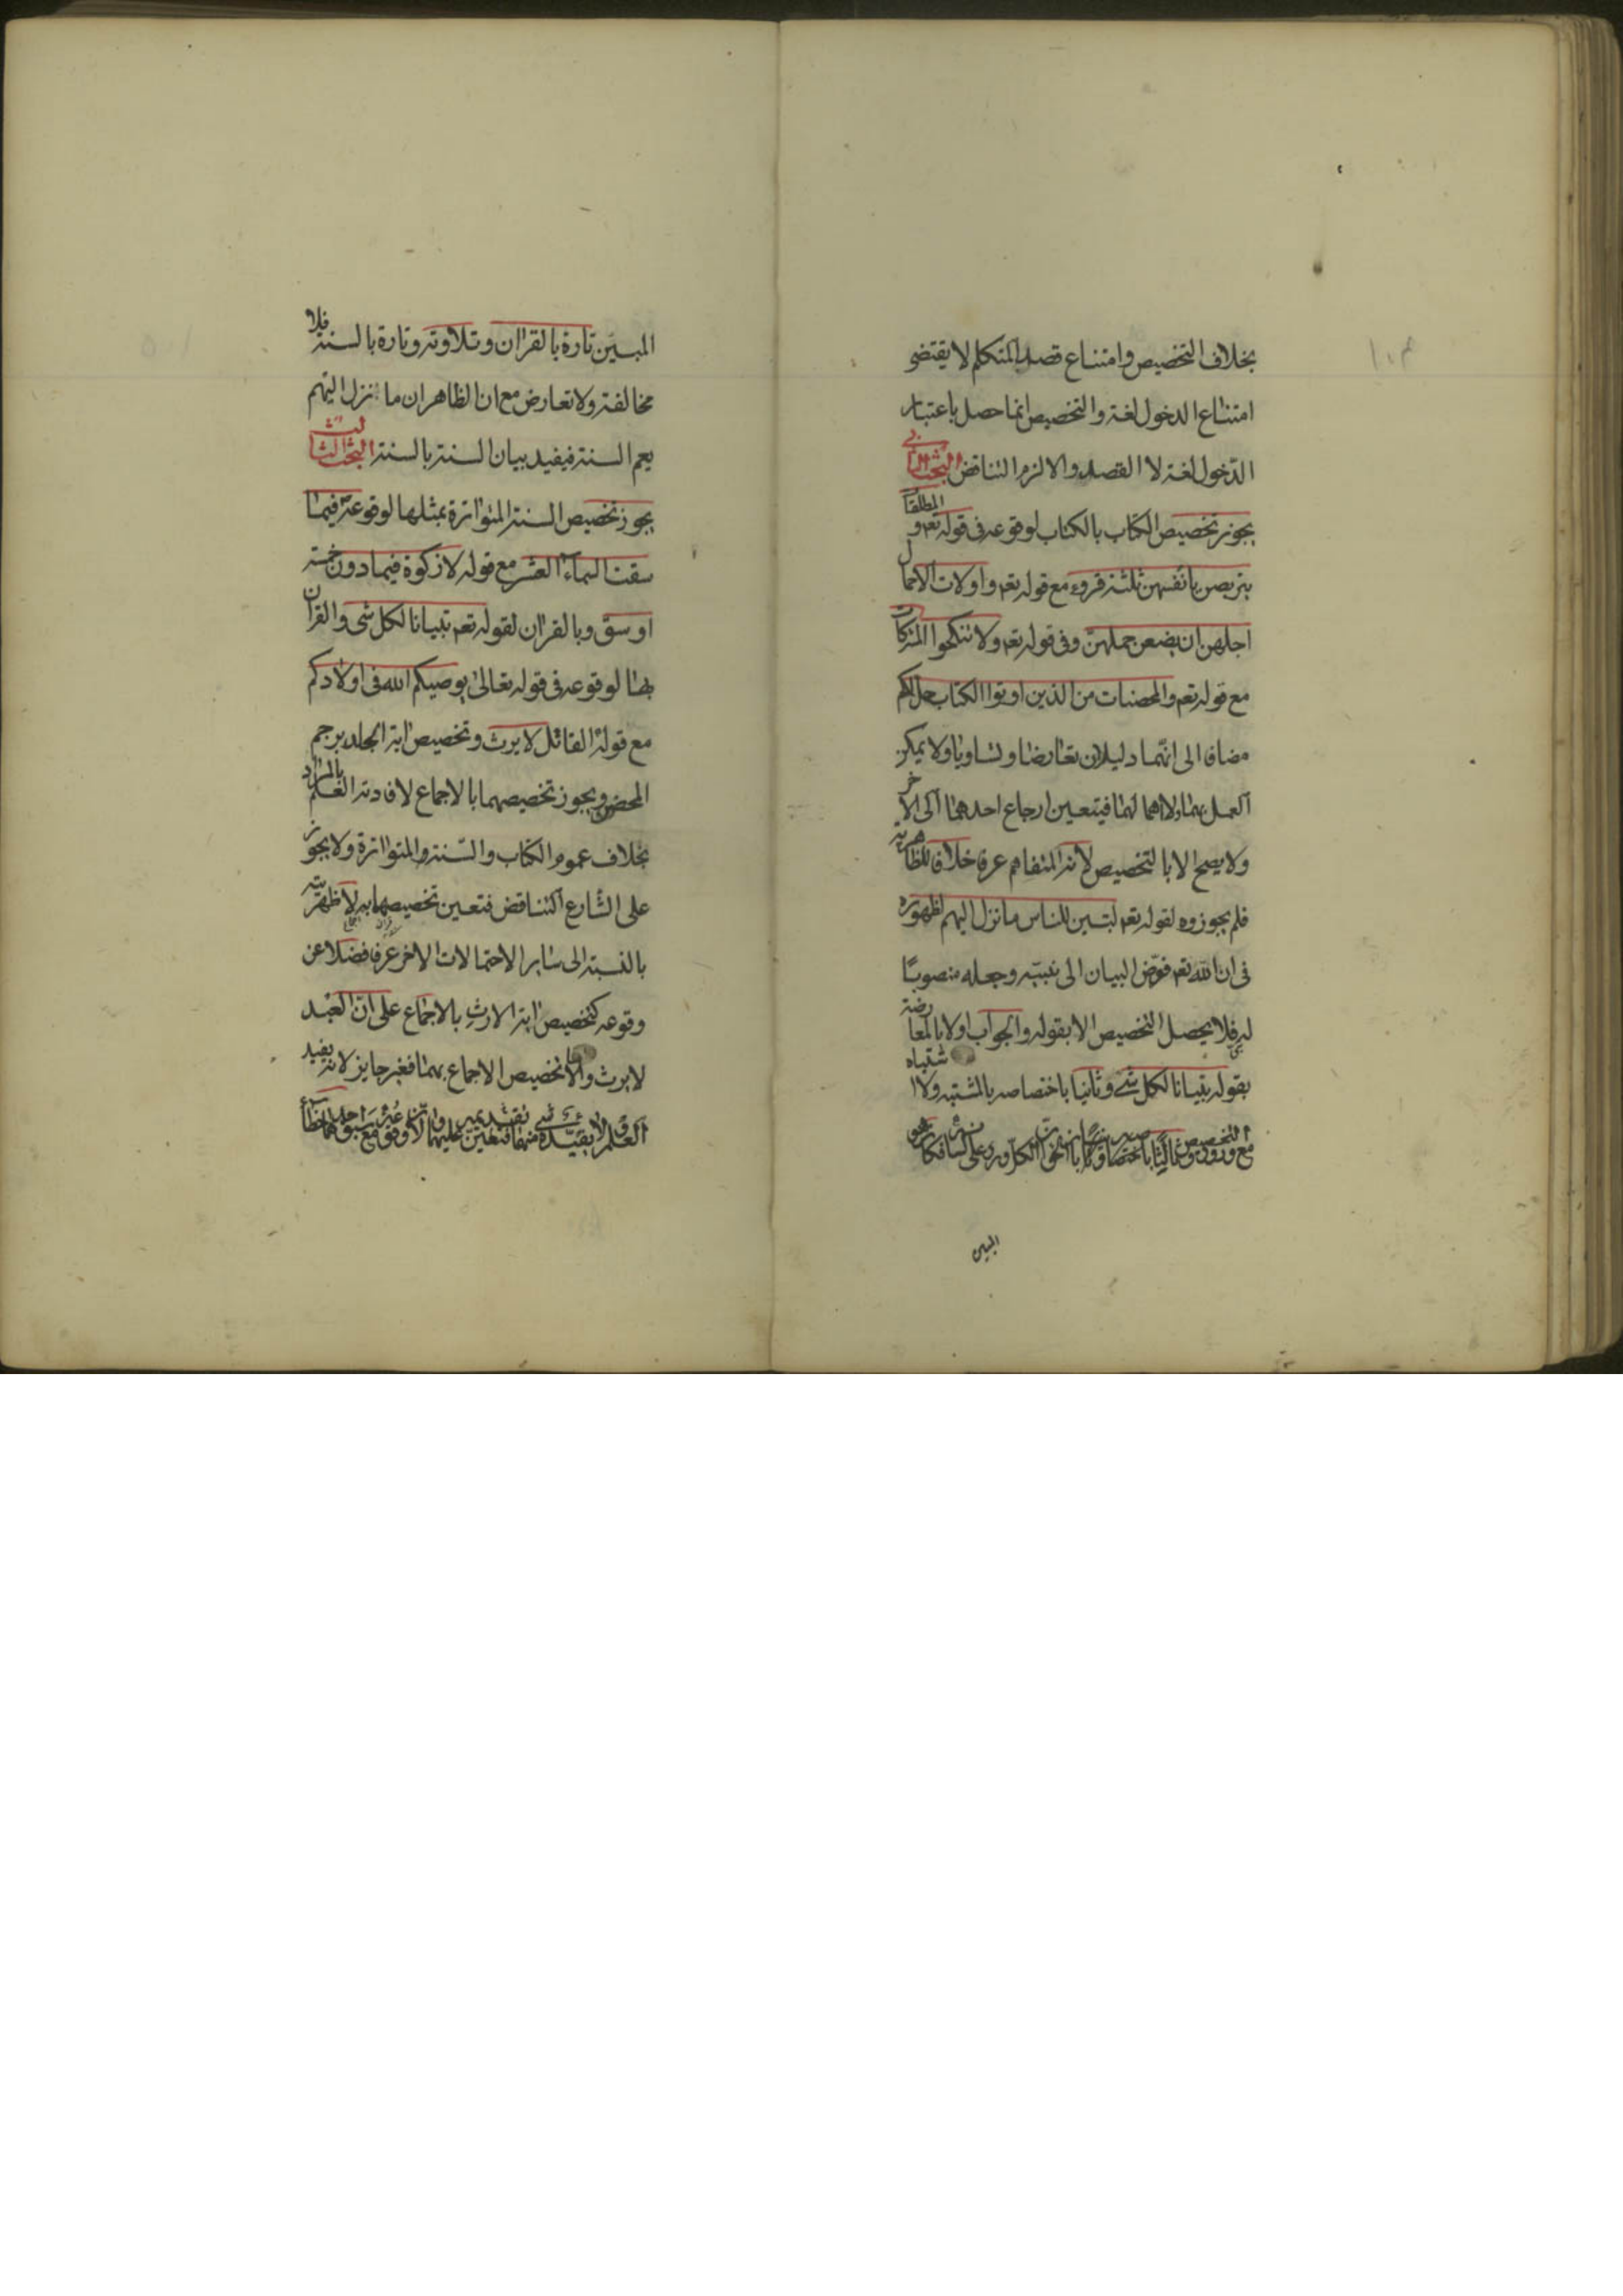 بخلاف التخصيص وامتناع قصد المتكلم لا يقتضى
امتناع الدخول لغة والتخصيص انما حصل باعتبار
الدخول لغة لا القصد والا لزم التناقض البحث الثانى
يجوز تخصيص الكتاب بالكتاب لوقوعه فى قوله تعه والمطلقات
يتربصن بانفسهن ثلثة قروء مع قوله تعه واولات الاحمال
اجلهن ان يضعن حملهن وفى قوله تعه ولا تنكحوا المشركات
مع قوله تعه والمحصنات من الذين اوتوا الكتاب حل لكم
مضافا الى انهما دليلان تعارضا وتساويا ولا يمكن
العمل بهما ولا اهمالهما فيتعين ارجاع احدهما الى الاخر
ولا يصح الا بالتخصيص لانه المتفاهم عرفا خلافا للظاهرية
فلم يجوزوه لقوله تعه لتبين للناس ما نزل اليهم لظهوره
فى ان الله تعه فوض البيان الى نبيه وجعله منصوبا
له فلا يحصل التخصيص الا بقوله والجواب اولا بالمعارضة
بقوله تبيانا لكل شئ وثانيا باختصاصه بالمشتبه ولا اشتباه
مع
المبين
المبين تارة بالقران وتلاوته وتارة بالسنة فلا
مخالفة ولا تعارض مع ان الظاهر ان ما نزل اليهم
يعم السنة فيفيد بيان السنة بالسنة البحث الثالث
يجوز تخصيص السنة المتواترة بمثلها لوقوعه فيما
سقت السماء العشر مع قوله لا زكوة فيما دون خمسة
اوسق وبالقران لقوله تعه تبيانا لكل شى والقران
بها لوقوعه فى قوله تعالى يوصيكم الله فى اولادكم
مع قوله القاتل لا يرث وتخصيص اية الجلد برجم
المحصن ويجوز تخصيصهما بالاجماع لافادته العلم بالمراد
بخلاف عموم الكتاب والسنة والمتواترة ولا يجوز
على الشارع التناقض فتعين تخصيصها به لاظهريته
بالنسبة الى سائر الاحتمالات الاخر عرفا فضلا عن
وقوعه كتخصيص اية الارث بالاجماع على ان العبد
لا يرث واما تخصيص الاجماع بهما فغير جايز لانه يفيد
العلم